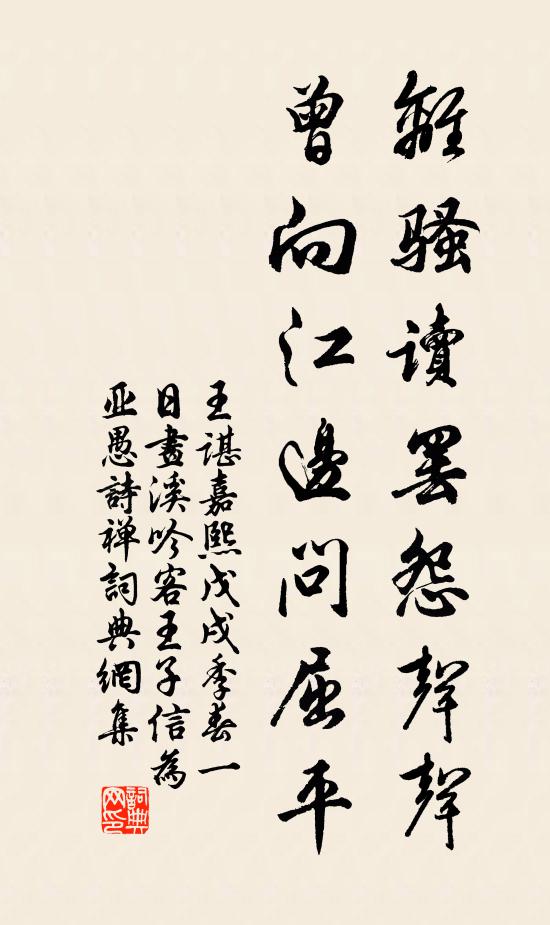 離騷讀罷怨聲聲
曾向江邊問屈平
王諶嘉熙戊戌季春一
日畫溪吟客王子信為
亚愚詩禅詞典網集
詞典
网印